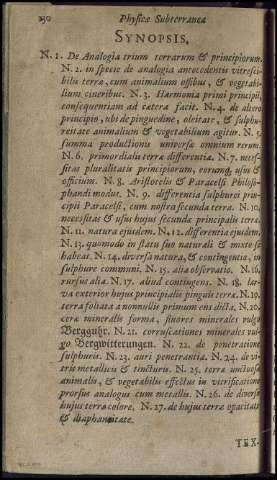 290 Physicæ Subterraneæ
SYNOPSIS.
N. 1. De Analogia trium terrarum & principiorum.
N. 2. in specie de analogia antecedentis vitresci-
bilis terræ, cum animalium ossibus, & vegetabi-
lium cineribus. N. 3. Harmonia primi principii,
consequentiam ad cætera facit. N. 4. de altero
principio, ubi de pinguedine, oleitate, & sulphu-
reitate animalium & vegetabilium agitur. N. 5.
summa productionis universæ omnium rerum.
N. 6. primordialis terræ differentia. N. 7. neces-
sitas pluralitatis principiorum, eorumq; usus &
officium. N. 8. Aristotelis & Paracelsi Philoso-
phandi modus. N. 9. differentia sulphurei prin-
cipii Paracelsi, cum nostra secunda terra. N. 10.
necessitas & usus hujus secundæ principalis terræ.
N. 11. natura ejusdem. N. 12. differentia ejusdem.
N. 13. quomodo in statu suo naturali & mixto se
habeat. N. 14. diversa natura, & contingentia, in
sulphure communi. N. 15. alia observatio. N. 16.
rursus alia. N. 17. aliud contingens. N. 18. lar-
va exterior hujus principialis pinguis terræ. N. 19.
terra foliata a nonnullis primum ens dicta. N. 20.
ceræ mineralis forma, fluores minerales vulgo
Bergguhr. N. 21. corruscationes minerales vul-
go Bergwitterungen. N. 22. de penetratione
sulphuris. N. 23. auri penetrantia. N. 24. de vi-
tris metallicis & tincturis. N. 25. terræ unctuosæ
animalis, & vegetabilis effectus in vitrificatione
prorsus analogus cum metallis. N. 26. de diversa
hujus terræ colore. N. 27. de hujus terræ opacitate
& diaphaneitate.
TEX-